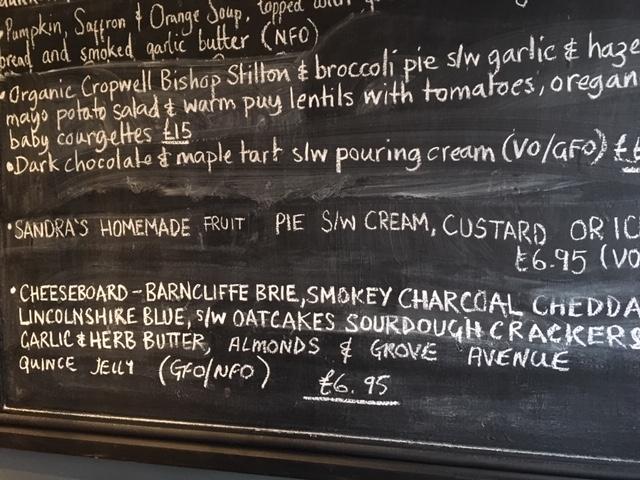 •Pumpkin, Saffron & Orange Soup, topped with
bread and smoked garlic butter (NFO)
•Organic Cropwell Bishop Stilton & broccoli pie s/w garlic & haze
mayo potato salad & warm puy lentils with tomatoes, oregan
baby courgettes £15
•Dark chocolate & maple tart s/w pouring cream (VO/GFO) £6
•SANDRA'S HOMEMADE FRUIT PIE S/W CREAM, CUSTARD OR IC
£6.95 (VO
•CHEESEBOARD - BARNCLIFFE BRIE, SMOKEY CHARCOAL CHEDDA
LINCOLNSHIRE BLUE, s/w OATCAKES SOURDOUGH CRACKERS
GARLIC & HERB BUTTER, ALMONDS & GROVE AVENUE
QUINCE JELLY (GFO/NFO) £6.95